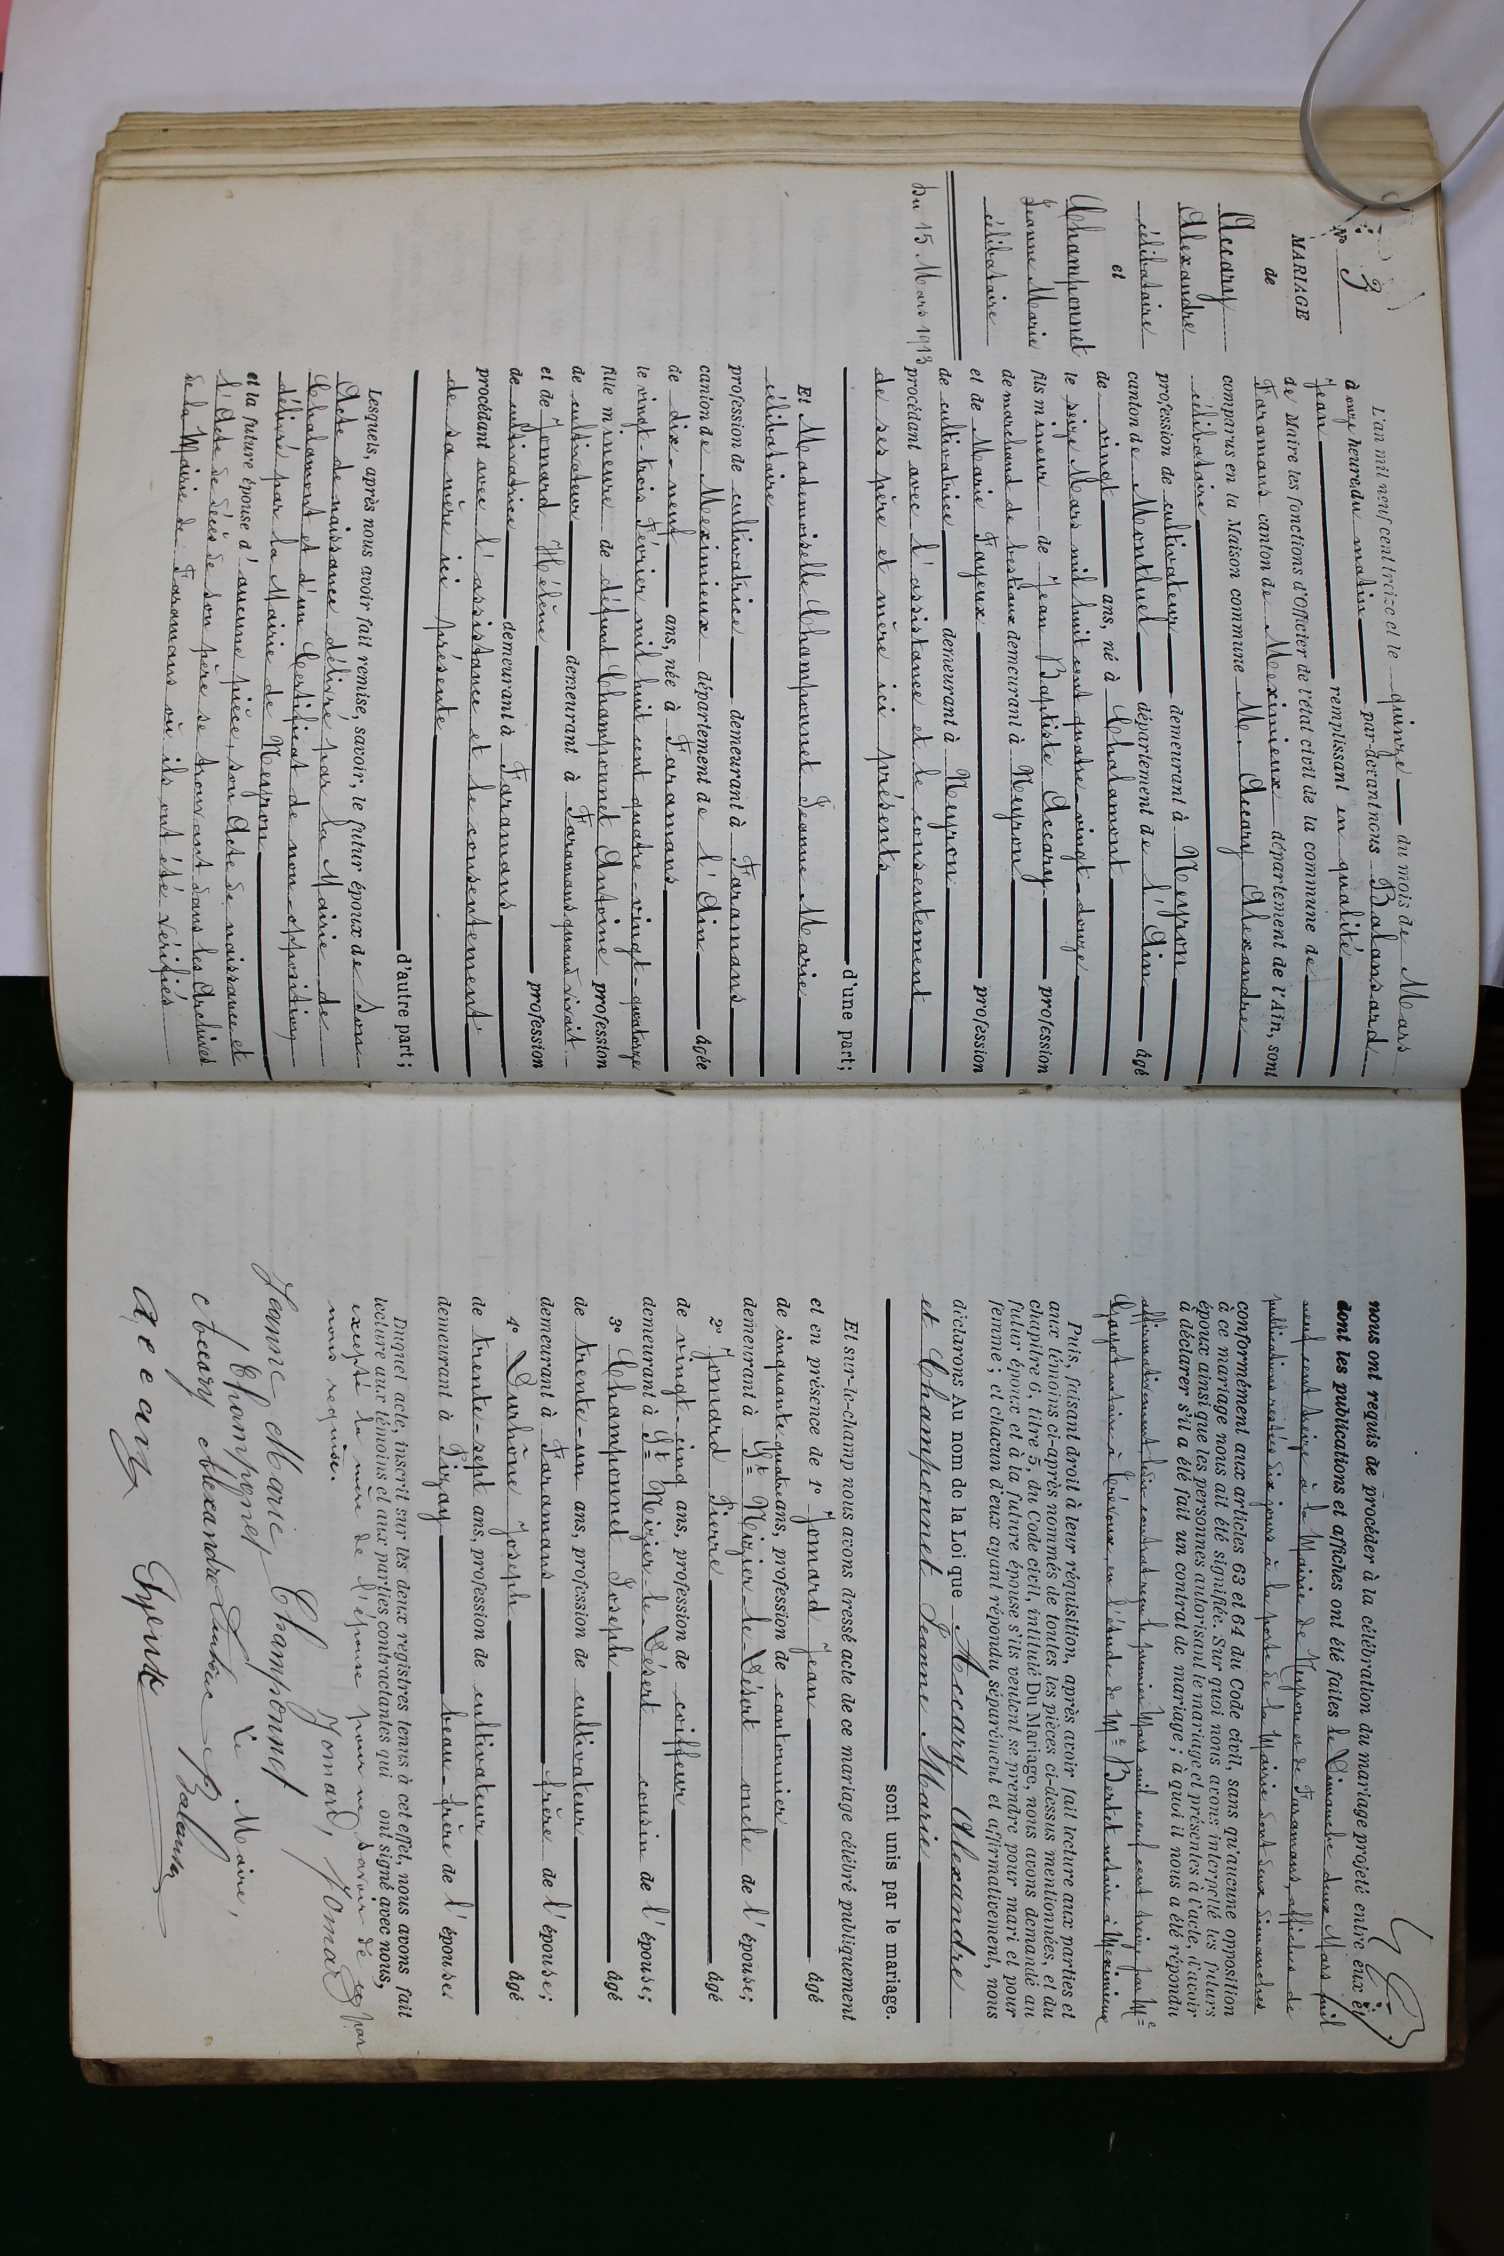 Nº 3
MARIAGE
de
Accary
Alexandre
célibataire
et
Champonnet
Jeanne Marie
célibataire
Du 15 Mars 1913
L'an mil neuf cent treize et le quinze du mois de Mars
à onze heures du matin par-devant nous Balansard
Jean remplissant en qualité
de Maire les fonctions d'Officier de l'état civil de la commune de
Faramans canton de Meximieux département de l'Ain, sont
comparus en la Maison commune M. Accary Alexandre
célibataire
profession de cultivateur demeurant à Neyron
canton de Montluel département de l'Ain âgé
de vingt ans, né à Chalamont
le seize Mars mil huit cent quatre-vingt-douze
fils mineur de Jean Baptiste Accary profession
de marchand de bestiaux demeurant à Neyron
et de Marie Fayeux profession
de cultivatrice demeurant à Neyron
procédant avec l'assistance et le consentement
de ses père et mère ici présents
d'une part;
Et Mademoiselle Champonnet Jeanne Marie
célibataire
profession de cultivatrice demeurant à Faramans
canton de Meximieux département de l'Ain âgée
de dix-neuf ans, née à Faramans
le vingt-trois Février mil huit cent quatre-vingt-quatorze
fille mineure de défunt Champonnet Antoine profession
de cultivateur demeurant à Faramans quand vivait
et de Jomard Hélène profession
de cultivatrice demeurant à Faramans
procédant avec l'assistance et le consentement
de sa mère ici présente
d'autre part;
Lesquels, après nous avoir fait remise, savoir, le futur époux de son
Acte de naissance délivré par la Mairie de
Chalamont et d'un Certificat de non-opposition
délivré par la Mairie de Neyron
et la future épouse d'aucune pièce, son Acte de naissance et
l'Acte de décès de son père se trouvant dans les Archives
de la Mairie de Faramans où ils ont été vérifiés
nous ont requis de procéder à la célébration du mariage projeté entre eux et
dont les publications et affiches ont été faites le Dimanche deux Mars mil
neuf cent treize à la Mairie de Neyron et de Faramans, affiches de
publications restées dix jours à la porte de la Mairie dont deux dimanches
conformément aux articles 63 et 64 du Code civil, sans qu'aucune opposition
à ce mariage nous ait été signifiée. Sur quoi nous avons interpellé les futurs
époux ainsi que les personnes autorisant le mariage et présentes à l'acte, d'avoir
à déclarer s'il a été fait un contrat de mariage; à quoi il nous a été répondu
affirmativement, leur contrat reçu le premier Mars mil neuf cent treize par Me
notaire à Trévoux, en l'étude de Me Bertet notaire à Meximieux
Puis, faisant droit à leur réquisition, après avoir fait lecture aux parties et
aux témoins ci-après nommés de toutes les pièces ci-dessus mentionnées, et du
chapitre 6, titre 5, du Code civil, intitulé Du Mariage, nous avons demandé au
futur époux et à la future épouse s'ils veulent se prendre pour mari et pour
femme; et chacun d'eux ayant répondu séparément et affirmativement, nous
déclarons Au nom de la Loi que Accary Alexandre
et Champonnet Jeanne Marie
sont unis par le mariage.
Et sur-le-champ nous avons dressé acte de ce mariage célébré publiquement
et en présence de 1º Jomard Jean âgé
de cinquante quatre ans, profession de cantonnier
demeurant à St Nizier-le-Désert oncle de l'épouse;
2º Jomard Pierre âgé
de vingt-cinq ans, profession de coiffeur
demeurant à St Nizier-le-Désert cousin de l'épouse;
3º Champonnet Joseph âgé
de trente-un ans, profession de cultivateur
demeurant à Faramans frère de l'épouse;
4º Durhône Joseph âgé
de trente-sept ans, profession de cultivateur
demeurant à Pizay beau-frère de l'épouse
Duquel acte, inscrit sur les deux registres tenus à cet effet, nous avons fait
lecture aux témoins et aux parties contractantes qui ont signé avec nous,
excepté la mère de l'épouse pour ne savoir de ce par
nous requise.
Jeanne Marie Champonnet Jomard Jomard
Champonnet Le Maire,
Accary Alexandre Balansard
accary Fayeux